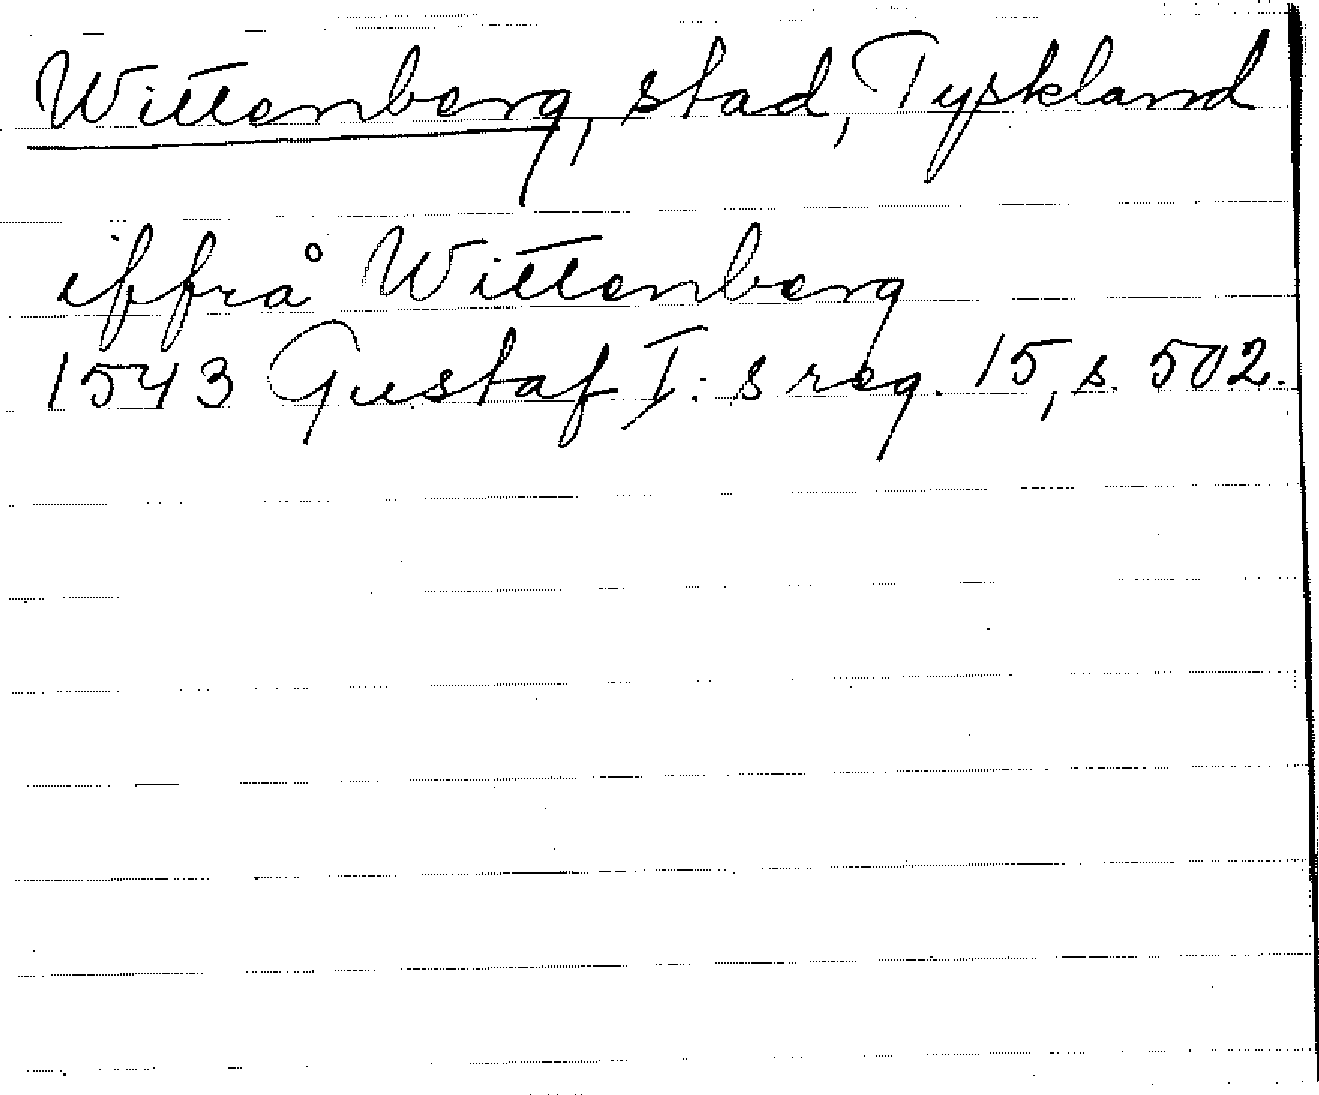 Wittenberg, stad, Tyskland
iffrå Wittenberg
1543 Gustaf I:s reg. 15, s. 502.